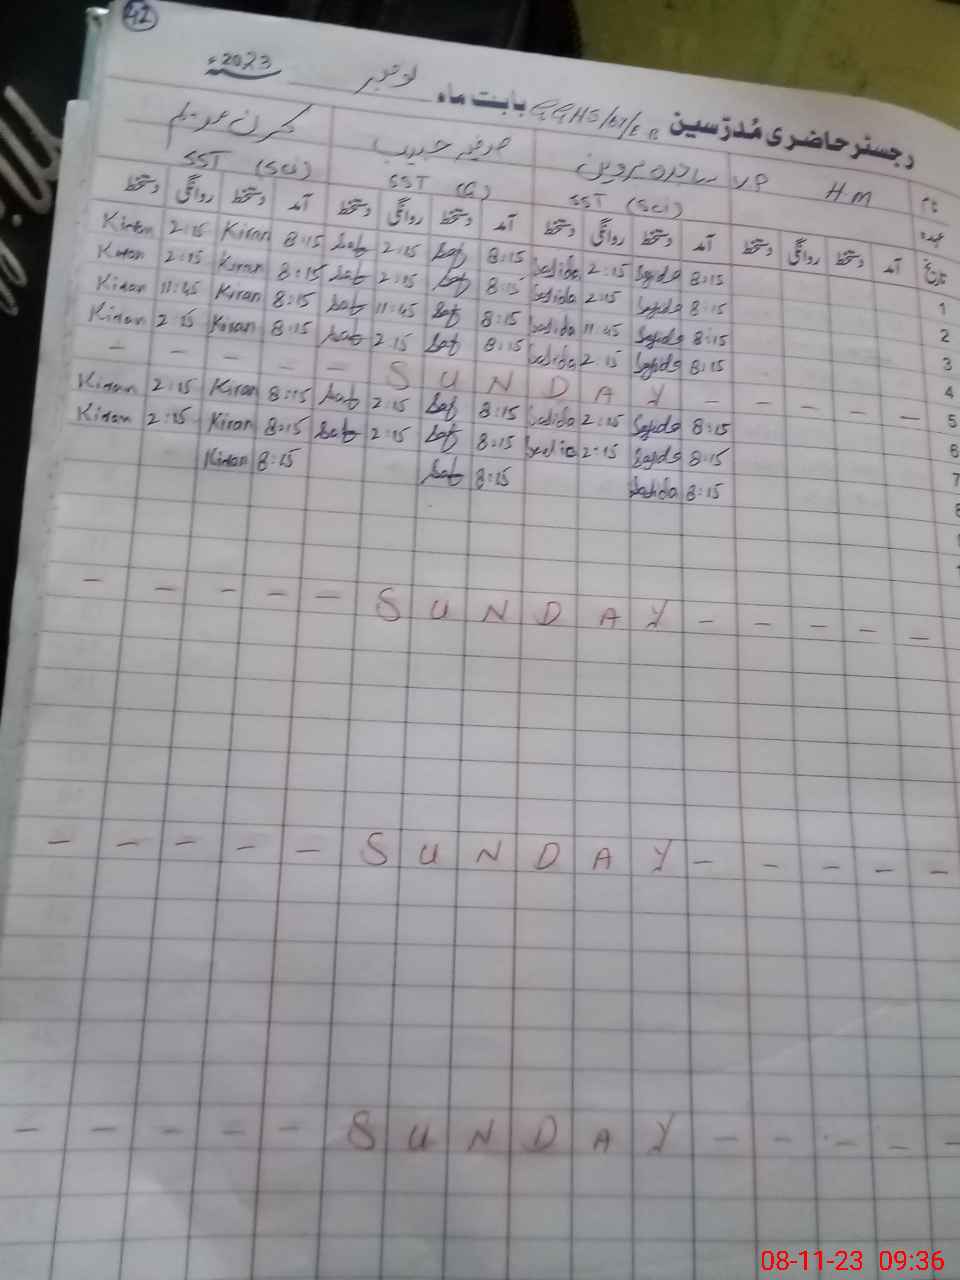 42
رجسٹر حاضری مُدرّسین GGHS بابت ماہ نومبر 2023ء
نام H.M VP ساجدہ پروین حبیب کرن
عہدہ SST (Sci) SST (G) SST (Sci)
تاریخ آمد دستخط روانگی دستخط آمد دستخط روانگی دستخط آمد دستخط روانگی دستخط آمد دستخط روانگی دستخط
1 8:15 Sajida 2:15 Sajida 8:15 Saf 2:15 Saf 8:15 Kiran 2:15 Kiran
2 8:15 Sajida 2:15 Sajida 8:15 Saf 2:15 Saf 8:15 Kiran 2:15 Kiran
3 8:15 Sajida 11:45 Sajida 8:15 Saf 11:45 Saf 8:15 Kiran 11:45 Kiran
4 8:15 Sajida 2:15 Sajida 8:15 Saf 2:15 Saf 8:15 Kiran 2:15 Kiran
5 - - - - - S U N D A Y - - - - -
6 8:15 Sajida 2:15 Sajida 8:15 Saf 2:15 Saf 8:15 Kiran 2:15 Kiran
7 8:15 Sajida 2:15 Sajida 8:15 Saf 2:15 Saf 8:15 Kiran 2:15 Kiran
8 8:15 Sajida 8:15 Saf 8:15 Kiran
- - - - - S U N D A Y - - - - -
- - - - - S U N D A Y - - - - -
- - - - - S U N D A Y - - - - -
08-11-23 09:36